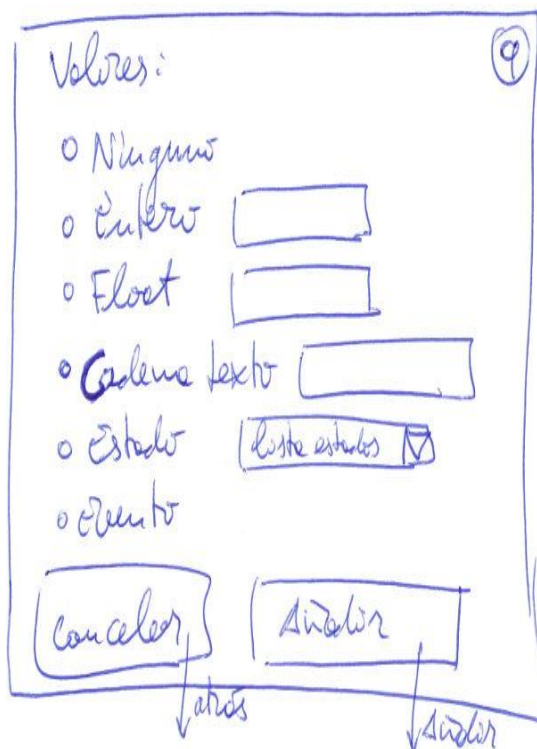 Valores: 9
Ninguno
Entero
Float
Cadena texto
Estado lista estados
Evento
Cancelar Añadir
atrás Añadir